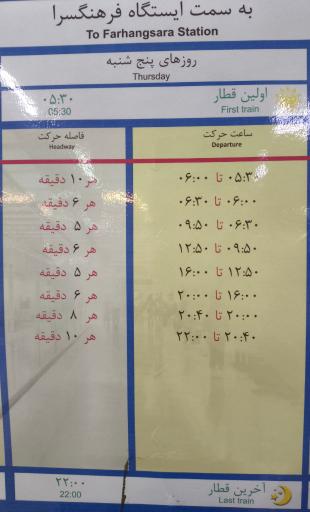 به سمت ایستگاه فرهنگسرا
To Farhangsara Station
روزهای پنج شنبه
Thursday
اولین قطار ۰۵:۳۰
First train 05:30
ساعت حرکت فاصله حرکت
Departure Headway
۰۵:۳۰ تا ۰۶:۰۰ هر ۱۰ دقیقه
۰۶:۰۰ تا ۰۶:۳۰ هر ۶ دقیقه
۰۶:۳۰ تا ۰۹:۵۰ هر ۵ دقیقه
۰۹:۵۰ تا ۱۲:۵۰ هر ۶ دقیقه
۱۲:۵۰ تا ۱۶:۰۰ هر ۵ دقیقه
۱۶:۰۰ تا ۲۰:۰۰ هر ۶ دقیقه
۲۰:۰۰ تا ۲۰:۴۰ هر ۸ دقیقه
۲۰:۴۰ تا ۲۲:۰۰ هر ۱۰ دقیقه
آخرین قطار ۲۲:۰۰
Last train 22:00